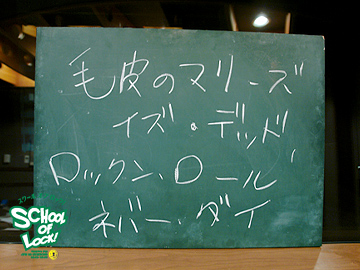 毛皮のマリーズ
イズ・デッド
ロックン・ロール
ネバー・ダイ
SCHOOL
OF
LOCK!